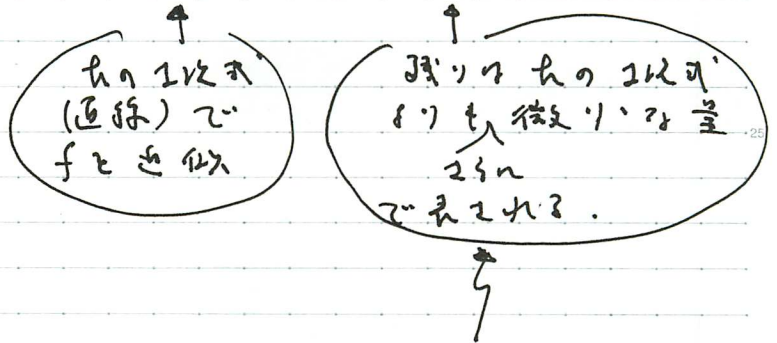 hの1次式
(直線)で
fを近似
残りは hの1次式
よりもさらに微小な量
で表される.
25